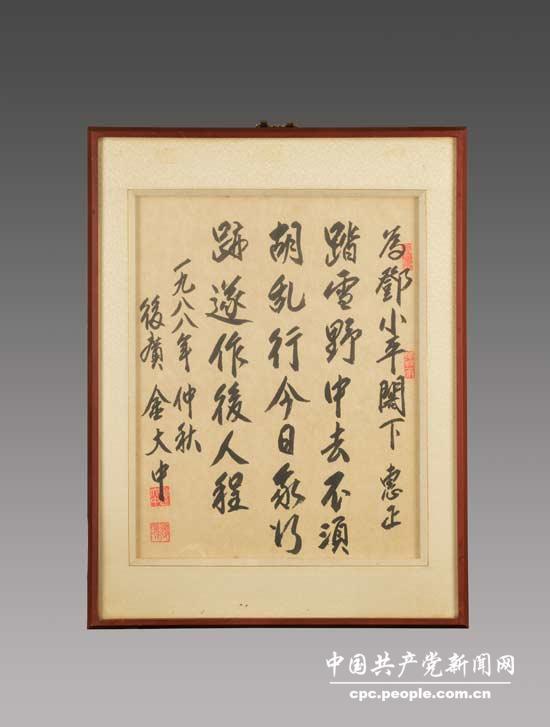 為鄧小平閣下 惠正
踏雪野中去不須
胡乱行今日我行
跡遂作後人程
一九八八年仲秋
後廣 金大中
中国共产党新闻网
cpc.people.com.cn